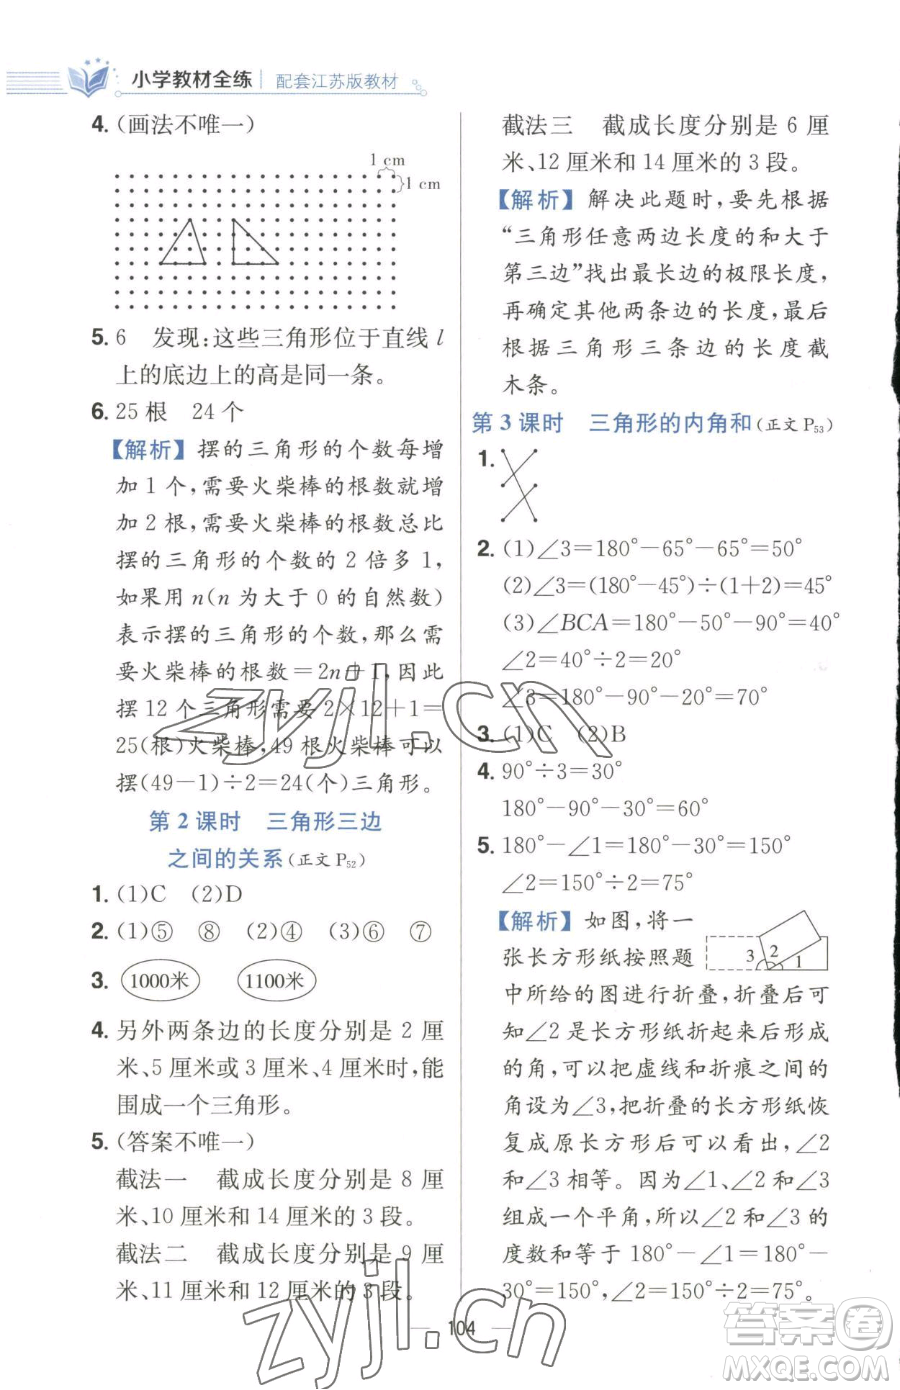 小学教材全练 配套江苏版教材
4.(画法不唯一)
1 cm
1 cm
5. 6 发现:这些三角形位于直线 l
上的底边上的高是同一条。
6. 25根 24个
【解析】摆的三角形的个数每增
加1个,需要火柴棒的根数就增
加2根,需要火柴棒的根数总比
摆的三角形的个数的2倍多1,
如果用n(n为大于0的自然数)
表示摆的三角形的个数,那么需
要火柴棒的根数=2n+1,因此
摆12个三角形需要2×12+1=
25(根)火柴棒,49根火柴棒可以
摆(49-1)÷2=24(个)三角形。
第2课时 三角形三边
之间的关系(正文P52)
1. (1)C (2)D
2. (1)⑤ ⑧ (2)④ ⑥ ⑦
3. 1000米 1100米
4. 另外两条边的长度分别是2厘
米、5厘米或3厘米、4厘米时,能
围成一个三角形。
5. (答案不唯一)
截法一 截成长度分别是8厘
米、10厘米和14厘米的3段。
截法二 截成长度分别是9厘
米、11厘米和12厘米的3段。
截法三 截成长度分别是6厘
米、12厘米和14厘米的3段。
【解析】解决此题时,要先根据
“三角形任意两边长度的和大于
第三边”找出最长边的极限长度,
再确定其他两条边的长度,最后
根据三角形三条边的长度截
木条。
第3课时 三角形的内角和(正文P53)
1.
2. (1)∠3=180°-65°-65°=50°
(2)∠3=(180°-45°)÷(1+2)=45°
(3)∠BCA=180°-50°-90°=40°
∠2=40°÷2=20°
∠3=180°-90°-20°=70°
3. (1)C (2)B
4. 90°÷3=30°
180°-90°-30°=60°
5. 180°-∠1=180°-30°=150°
∠2=150°÷2=75°
【解析】如图,将一
张长方形纸按照题
3 2 1
中所给的图进行折叠,折叠后可
知∠2是长方形纸折起来后形成
的角,可以把虚线和折痕之间的
角设为∠3,把折叠的长方形纸恢
复成原长方形可以看出,∠2
和∠3相等。因为∠1、∠2和∠3
组成一个平角,所以∠2和∠3的
度数和等于180°-∠1=180°-
30°=150°,∠2=150°÷2=75°。
104
zyjl.cn
zyjl.cn
答案圈
MXQE.COM